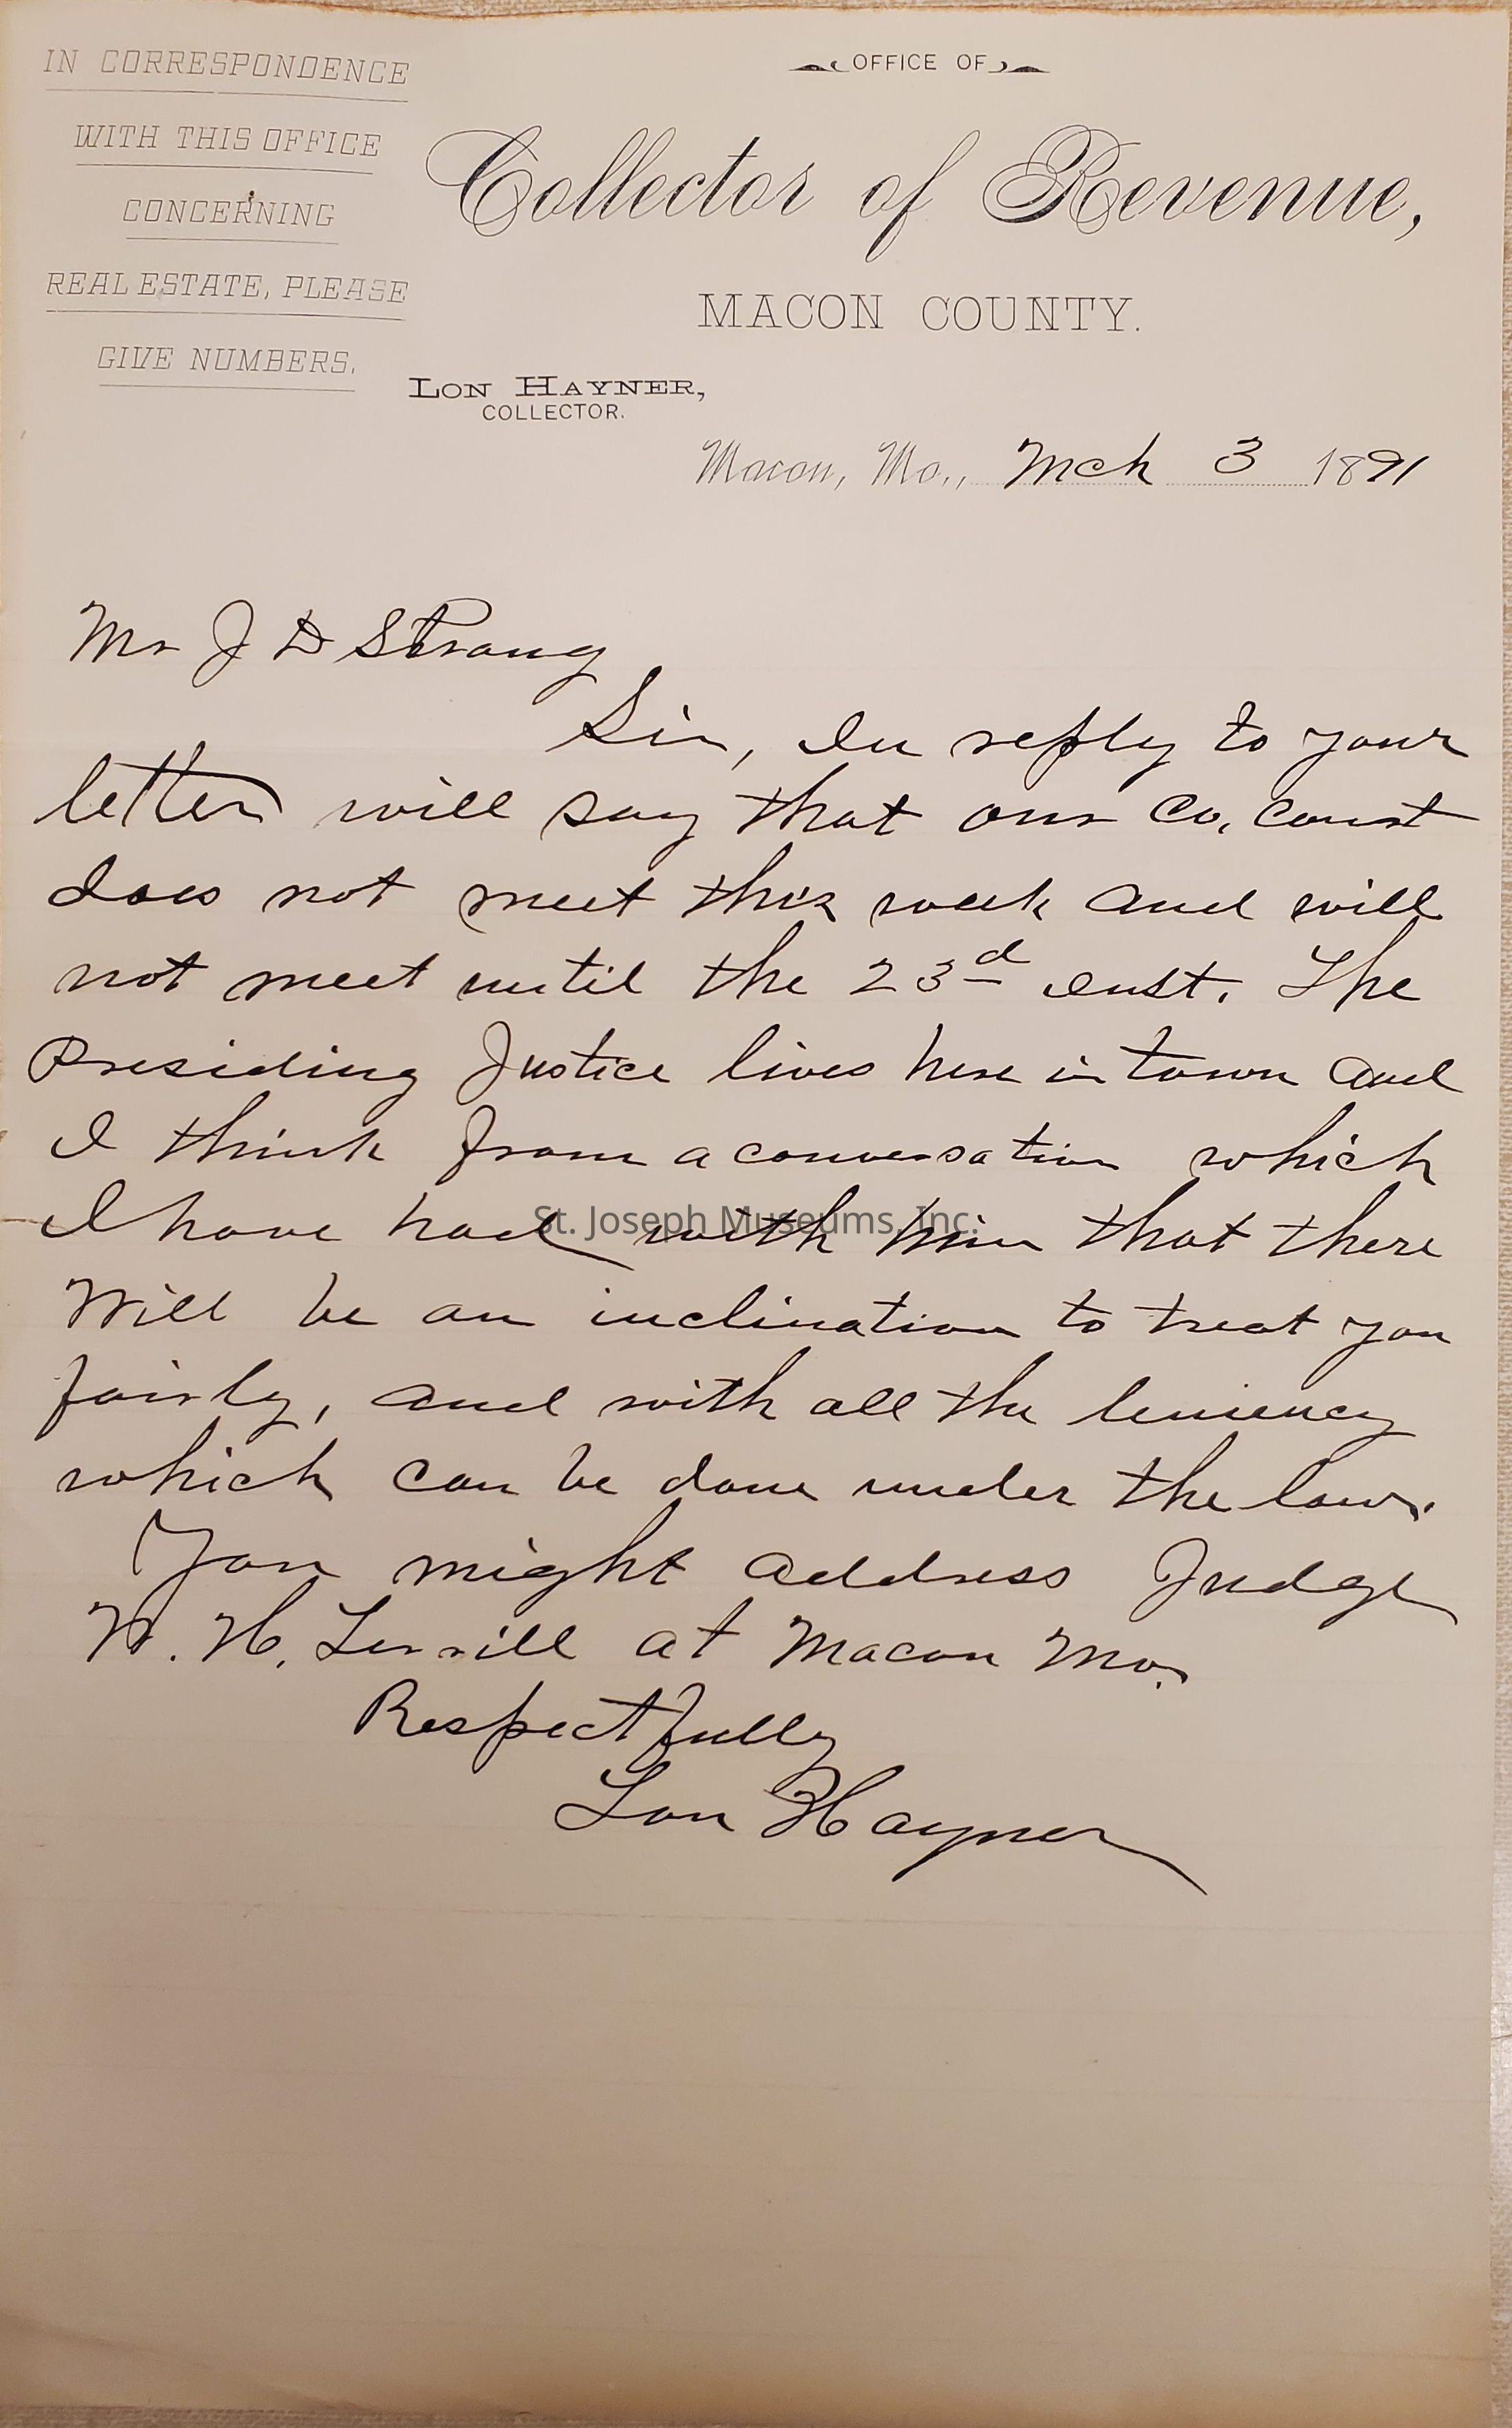 IN CORRESPONDENCE
WITH THIS OFFICE
CONCERNING
REAL ESTATE, PLEASE
GIVE NUMBERS.
OFFICE OF
Collector of Revenue,
MACON COUNTY.
LON HAYNER,
COLLECTOR.
Macon, Mo., Mch 3 1891
Mr J D Strong
Sir, In reply to your
letter will say that our Co, Court
does not meet this week and will
not meet until the 23d inst. The
Presiding Justice lives here in town and
I think from a conversation which
I have had with him that there
Will be an inclination to treat you
fairly, and with all the leniency
which can be done under the law.
You might address Judge
W. H. at Macon Mo.
Respectfully
Lon Hayner
St. Joseph Museums, Inc.